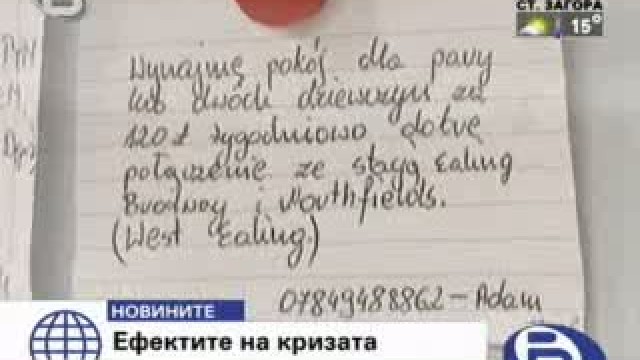 СТ. ЗАГОРА
15°
Wynajmę pokój dla pary
lub dwóch dziewczyn za
120£ tygodniowo dobre
połączenie ze stacją Ealing
Broadway i Northfields.
(West Ealing)
07849488862 – Adam
НОВИНИТЕ
Ефектите на кризата